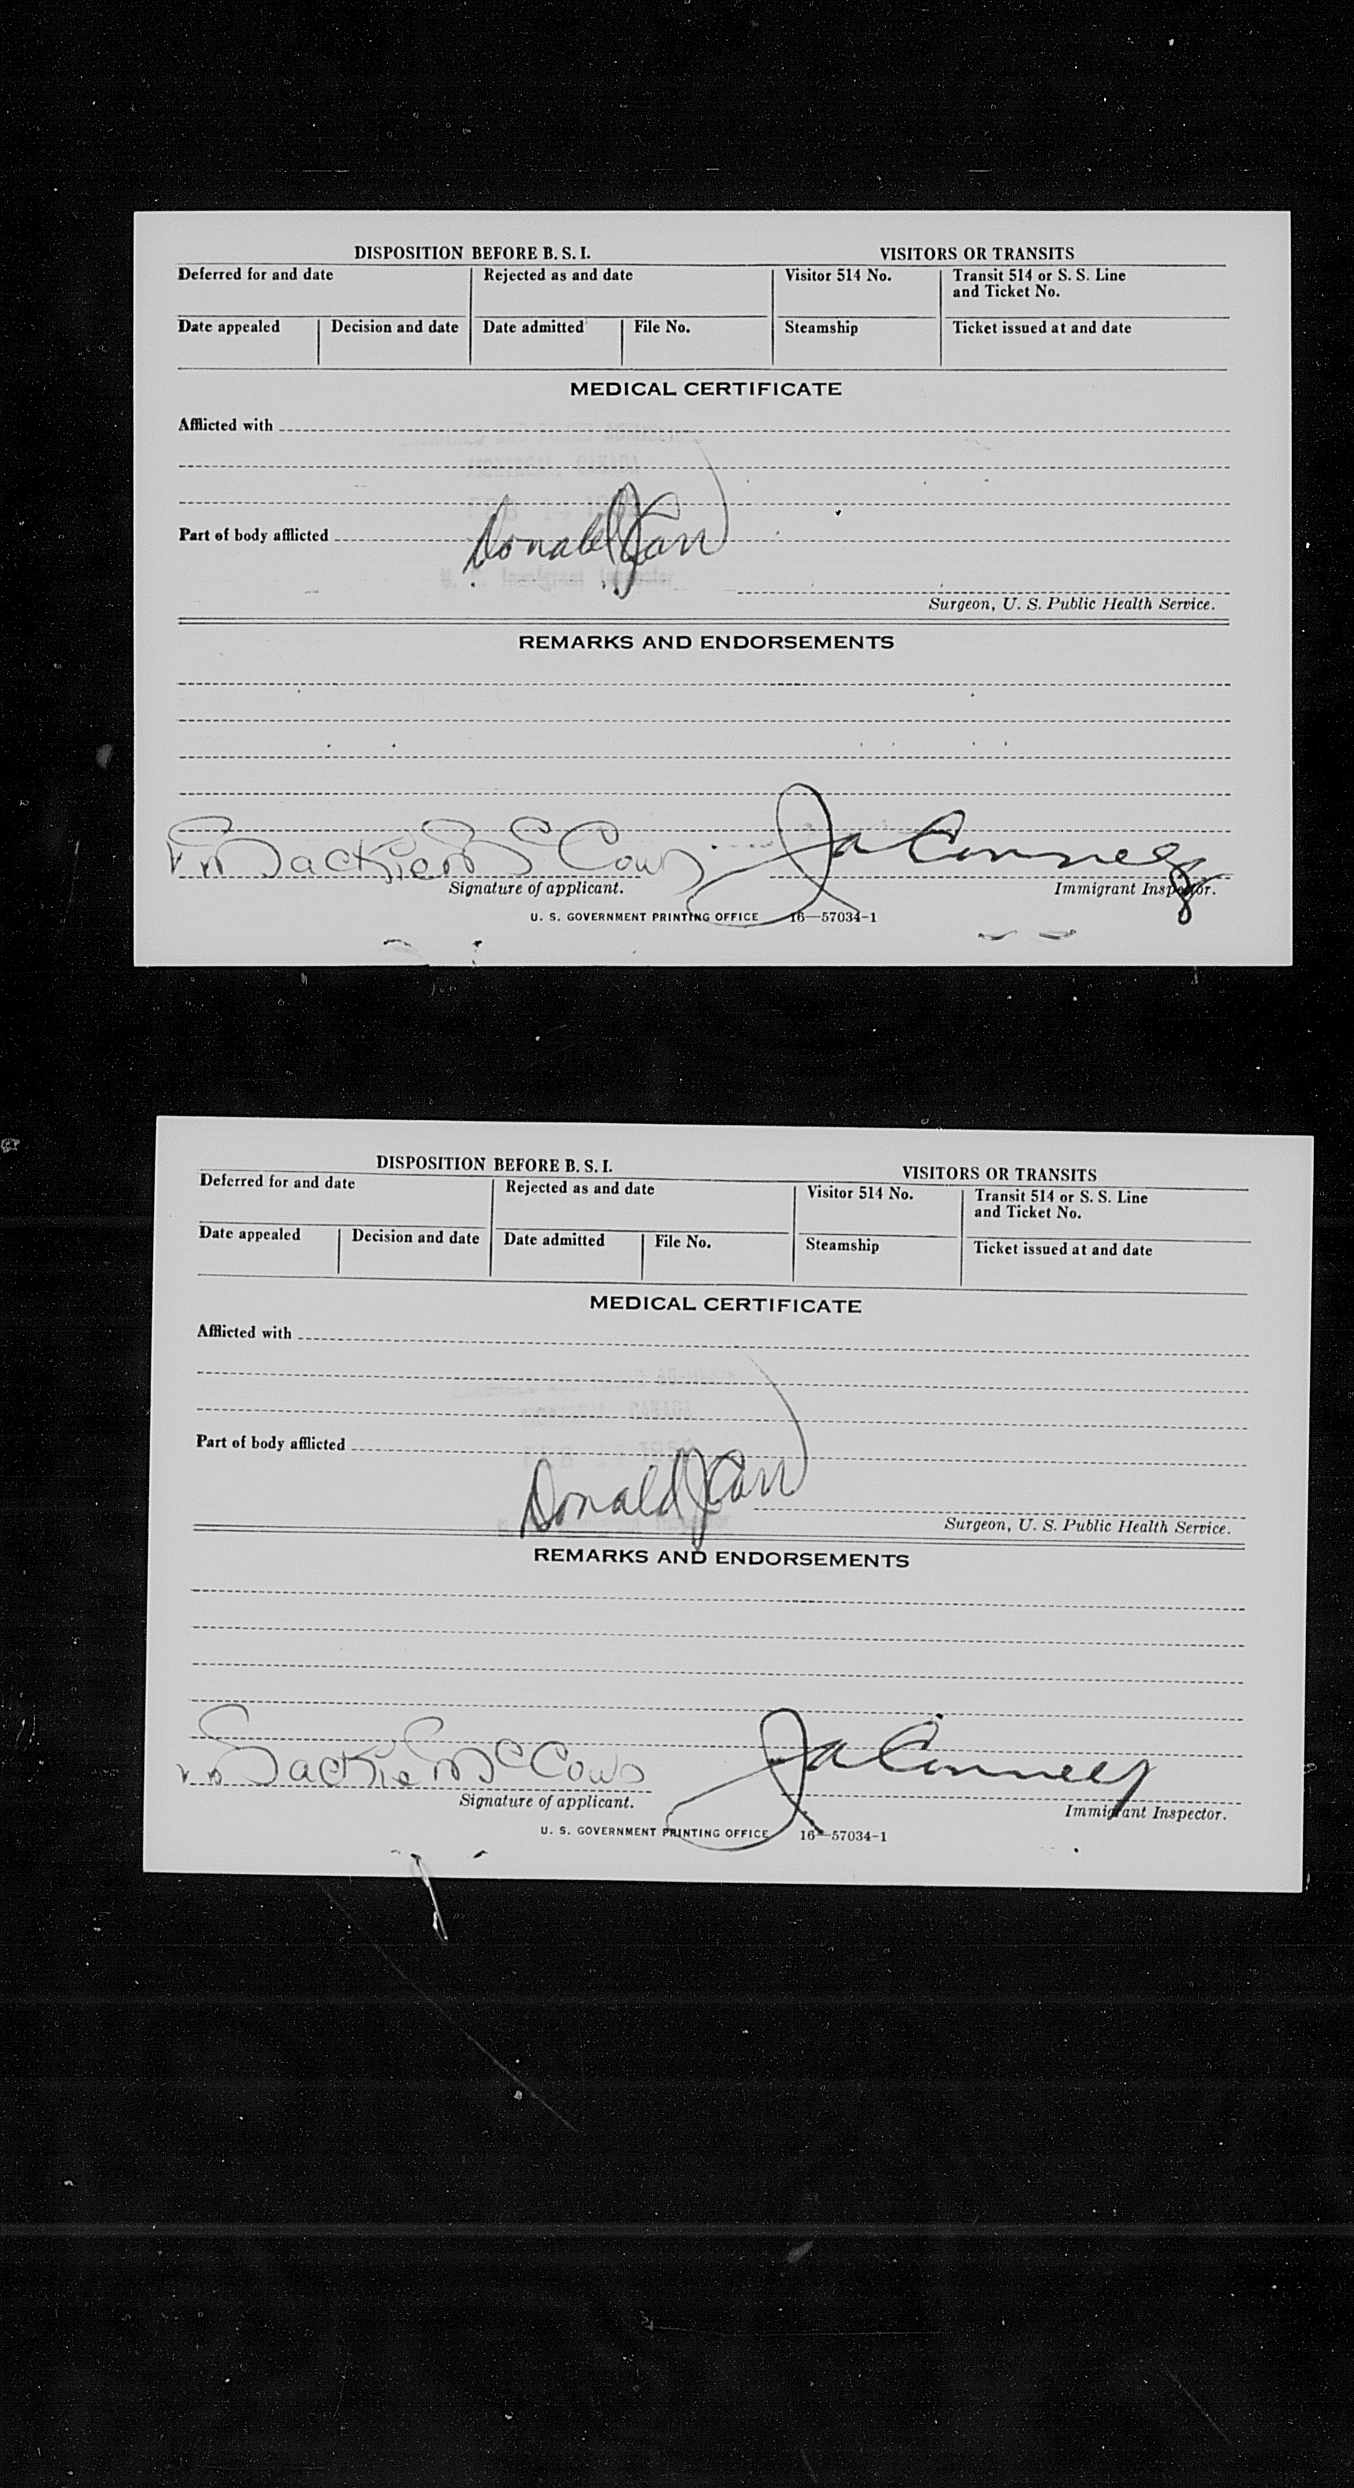 DISPOSITION BEFORE B. S. I. VISITORS OR TRANSITS
Deferred for and date Rejected as and date Visitor 514 No. Transit 514 or S. S. Line
and Ticket No.
Date appealed Decision and date Date admitted File No. Steamship Ticket issued at and date
MEDICAL CERTIFICATE
Afflicted with
Part of body afflicted
Donald J Carr
Surgeon, U. S. Public Health Service.
REMARKS AND ENDORSEMENTS
Jackie Mc
Signature of applicant. Immigrant Inspector.
U. S. GOVERNMENT PRINTING OFFICE 16—57034-1
DISPOSITION BEFORE B. S. I. VISITORS OR TRANSITS
Deferred for and date Rejected as and date Visitor 514 No. Transit 514 or S. S. Line
and Ticket No.
Date appealed Decision and date Date admitted File No. Steamship Ticket issued at and date
MEDICAL CERTIFICATE
Afflicted with
Part of body afflicted
Donald J Carr
Surgeon, U. S. Public Health Service.
REMARKS AND ENDORSEMENTS
Jackie Mc
Signature of applicant. Immigrant Inspector.
U. S. GOVERNMENT PRINTING OFFICE 16—57034-1